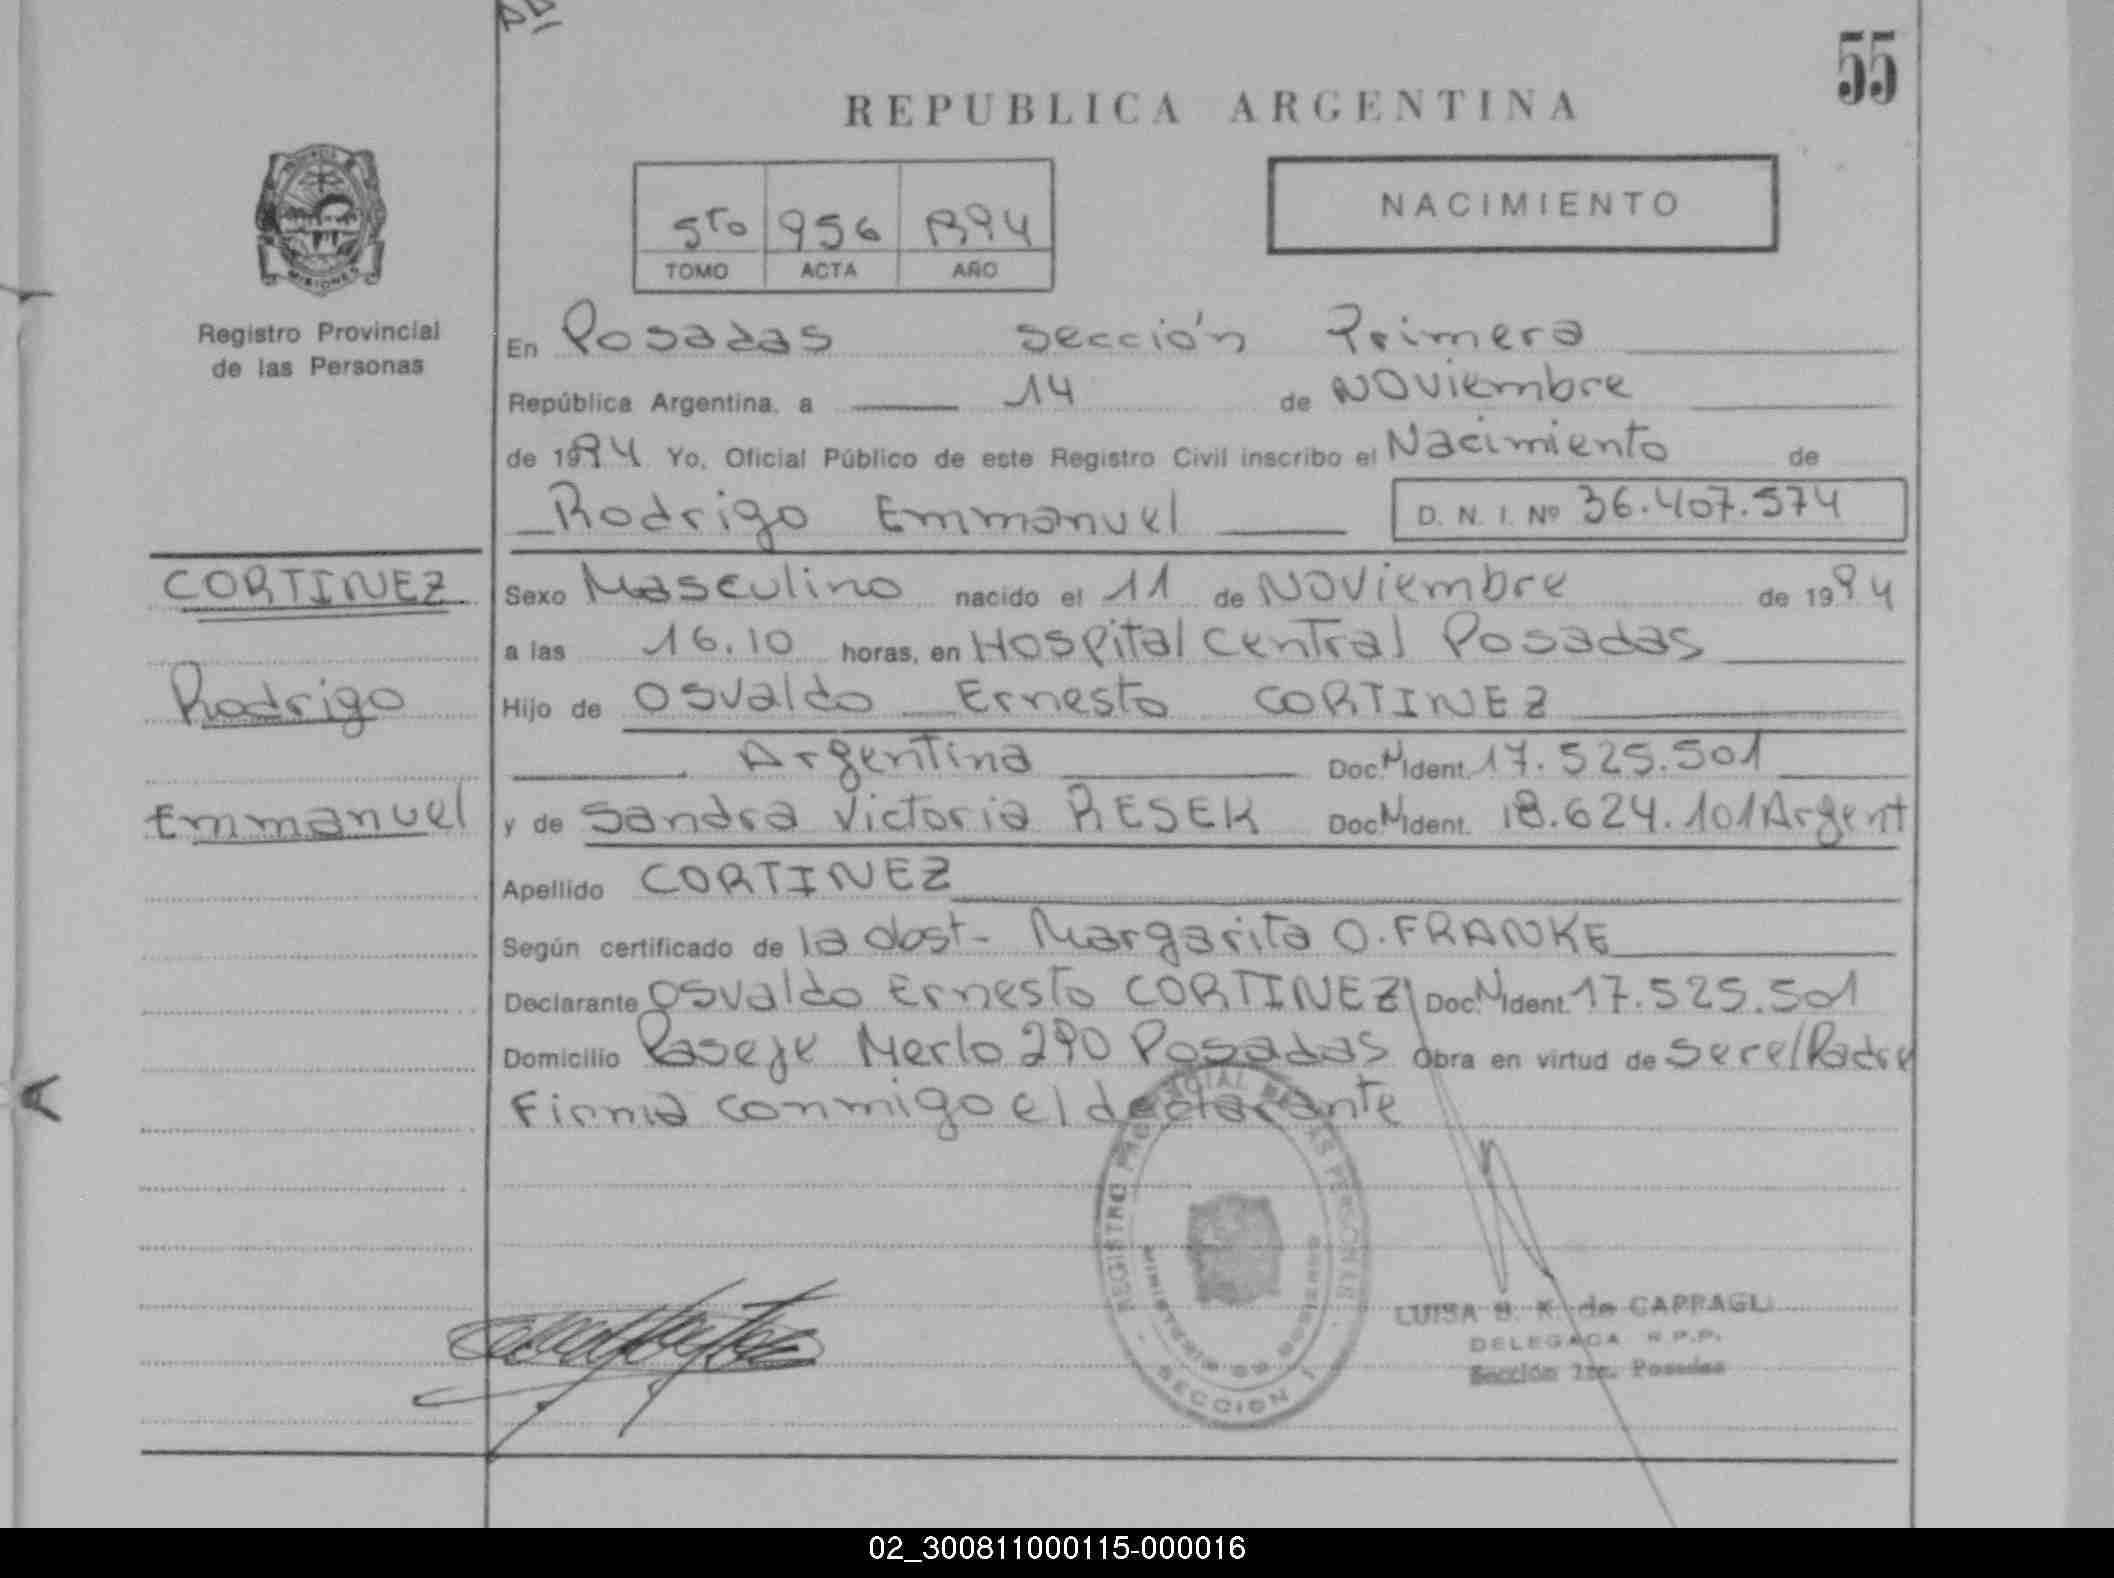 55
REPUBLICA ARGENTINA
NACIMIENTO
5to 956 1994
TOMO ACTA AÑO
MISIONES
Registro Provincial
de las Personas
En Posadas sección Primera
República Argentina, a 14 de NOViembre
de 1994 Yo, Oficial Público de este Registro Civil inscribo el Nacimiento de
Rodrigo Emmanuel D. N. I. Nº 36.407.574
CORTINEZ
Rodrigo
Emmanuel
Sexo Masculino nacido el 11 de NOViembre de 1994
a las 16.10 horas, en Hospital Central Posadas
Hijo de Osvaldo Ernesto CORTINEZ
Argentina Doc. N Ident. 17.525.501
y de Sandra Victoria RESEK Doc. N Ident. 18.624.101 Argent
Apellido CORTINEZ
Según certificado de la obst- Margarita O. FRANKE
Declarante Osvaldo Ernesto CORTINEZ Doc. N Ident. 17.525.501
Domicilio Paseje Merlo 290 Posadas Obra en virtud de ser el Padre
Firma conmigo el declarante
REGISTRO PROVINCIAL DE LAS PERSONAS
MINISTERIO DE GOBIERNO
SECCION 1
LUISA B. K. de
DELEGADA R.P.P.
Sección 1ra. Posadas
02_300811000115-000016